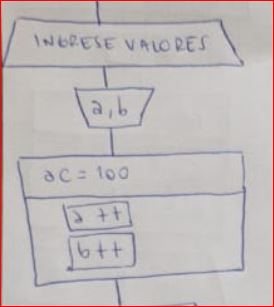 INGRESE VALORES
a, b
ac = 100
a ++
b++